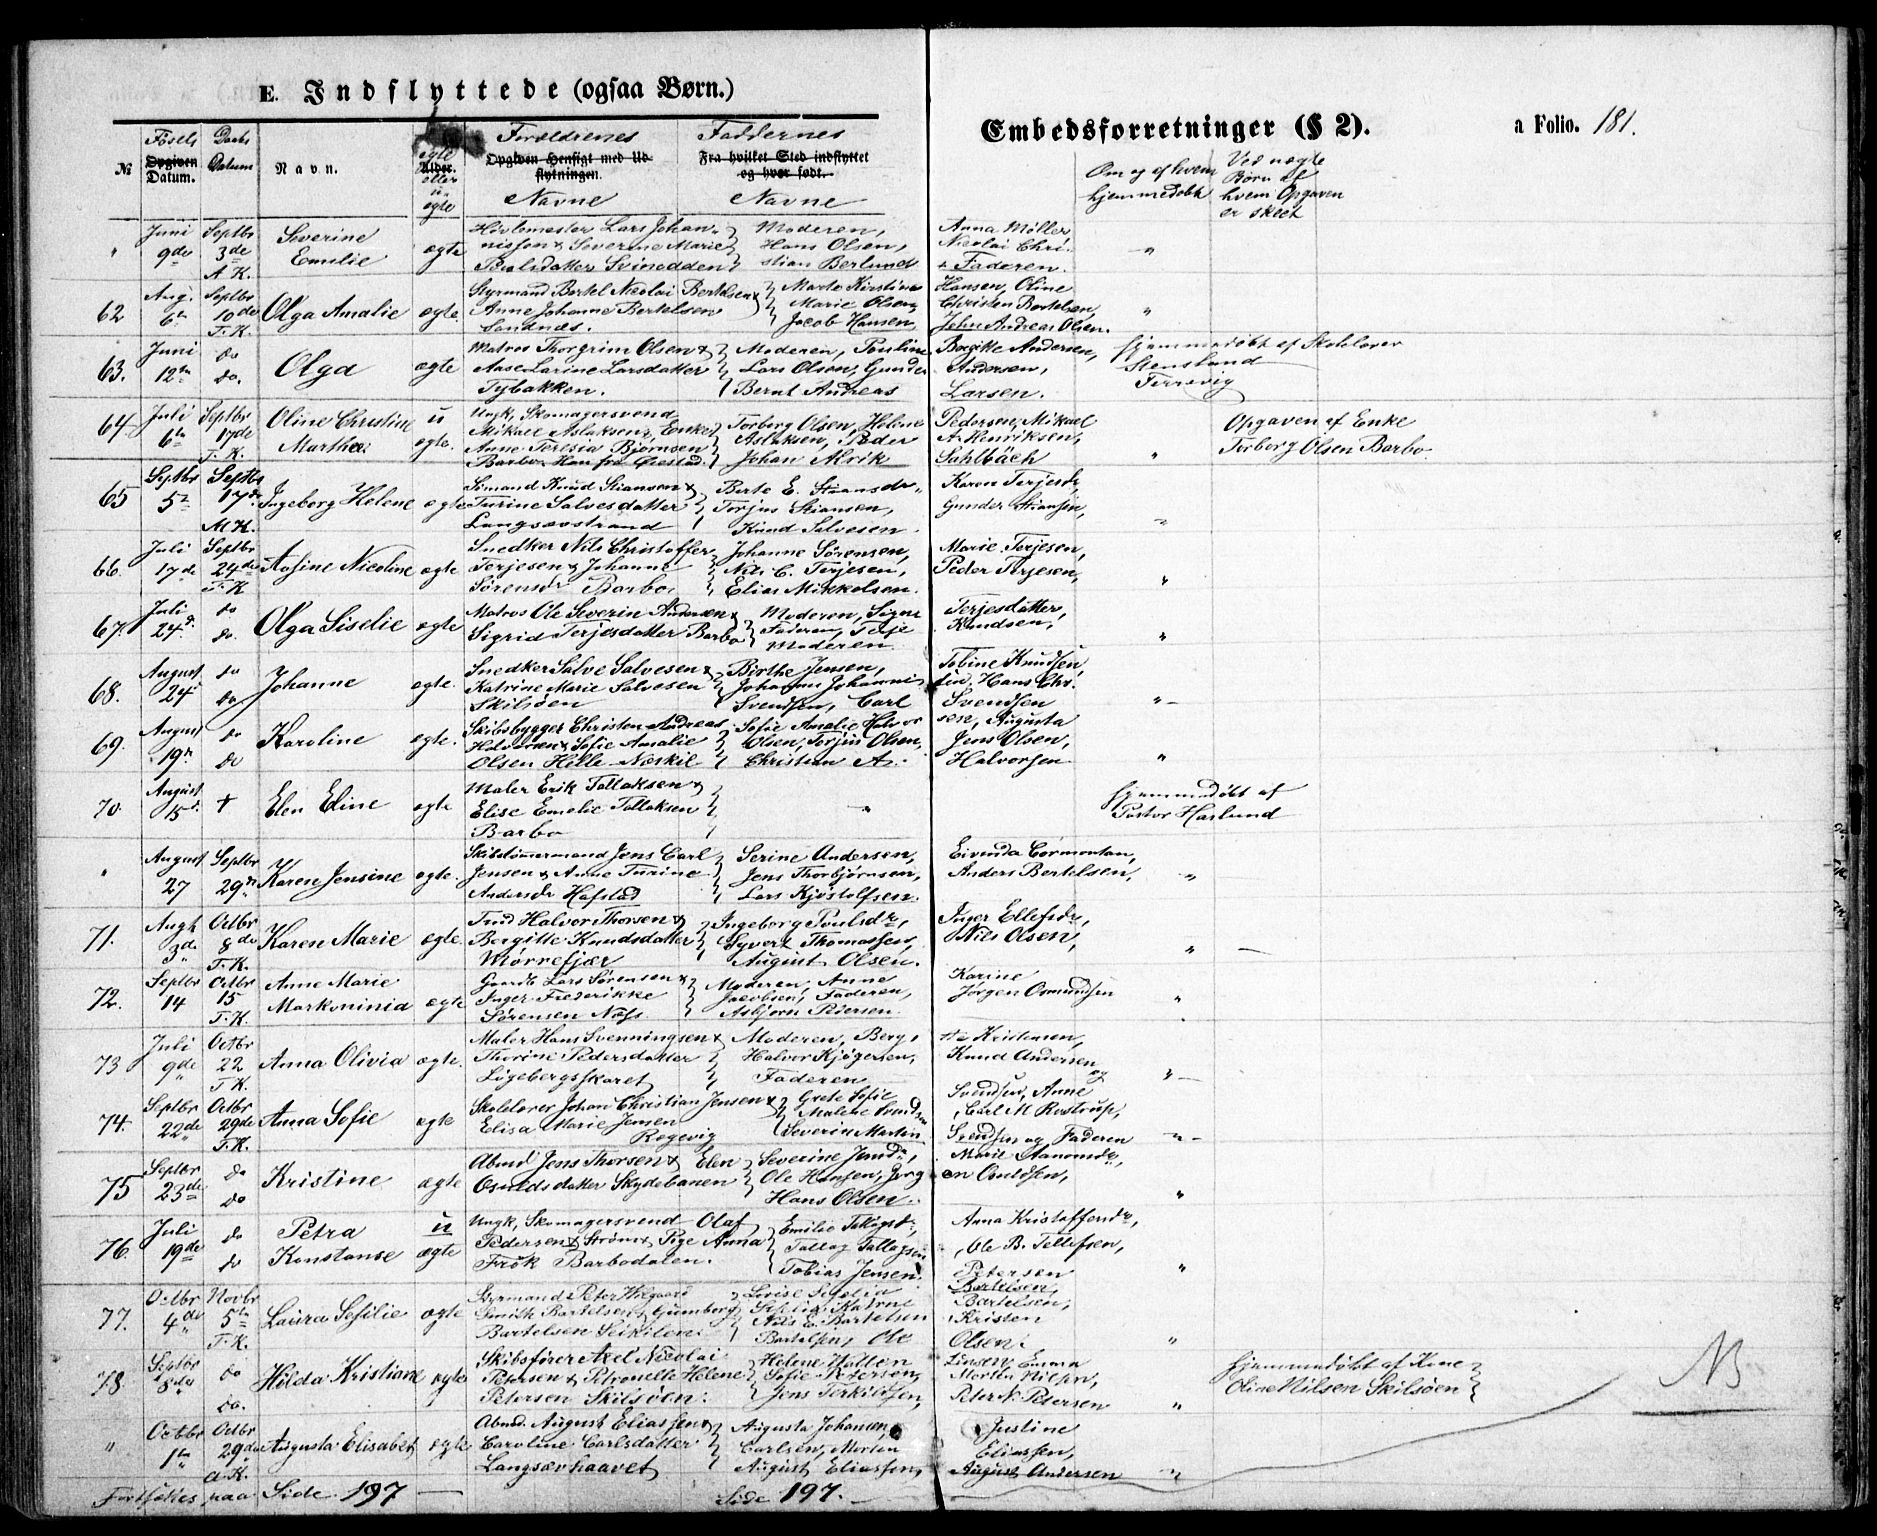 E. Indflyttede (ogsaa Børn.)
Embedsforretninger (§ 2).
a Folio. 181.
№
Føsels
Opgiven
Datum.
Daabs
Datum
Navn.
ægte
Alder.
eller
u-
ægte
Forældrenes
Opgiven Hensigt med Ud
flytningen.
Navne
Faddernes
Fra hvilket Sted indflyttet
og hvor født.
Navne
Om og af hvem
hjemmedøbt
Ved uægte
Børn af
hvem Opgaven
er skeet
" Juni 9de Septbr 3de A.K. Severine Emilie ægte
Lars Johan-
nissen & Severine Marie
Poulsdatter Svinodden
Moderen, Anna Møller
Hans Olsen, Nicolai Chri-
stian Berlund + Faderen.
"
62 Aug. 6te Septbr 10de T.K. Olga Amalie ægte.
Styrmand Bertel Nicolai Bertelsen &
Anne Johanne Bertelsen
Sandnæs.
Marte Kirstine Hansen, Oline
Marie Olsen, Christen Bertelsen,
Jacob Hansen, John Andreas Olsen.
"
63. Juni 12te do do. Olga ægte
Matros Thorgrim Olsen &
Aase Larine Larsdatter
Tybakken.
Moderen, Pouline Birgitte Andersen,
Lars Olsen, Gunder Andersen,
Bernt Andreas Larsen.
hjemmedøbt af Skolelærer
Stensland
Færevig
64 Juli 6te Septbr 17de T.K. Oline Christine Marthea u ægte.
Ungk, Skomagersvend
Mikael Aslaksen, Enke
Anne Teresia Bjørnsen
Barbo. Han fra Øiestad.
Torborg Olsen, Helene Pedersen, Mikael
Aslaksen, Peder A. Henriksen,
Johan Alrik Sahlbäch
"
Opgaven af Enke
Torborg Olsen Barbo.
65 Septbr 5te Septbr 17de M.K. Ingeborg Helene ægte
Sømand Knud Stiansen &
Turine Salvesdatter
Langsævstrand
Berte E. Stiansdr, Karen Terjesdr,
Torjus Stiansen, Gunder Stiansen,
Knud Salvesen.
"
66. Juli 17de Septbr 24de T.K. Aasine Nicoline ægte
Snedker Nils Christoffer
Terjesen & Johanne
Sørensdr Barbo
Johanne Sørensen, Marie Terjesen,
Nils C. Terjesen, Peder Terjesen,
Elias Mikkelsen.
"
67. Juli 24de do do. Olga Siselie ægte
Matros Ole Severin Andersen &
Sigrid Terjesdatter Barbo
Moderen, Signe Terjesdatter,
Faderen, Terje Knudsen,
Moderen
"
68. August 24 do do Johanne ægte.
Snedker Salve Salvesen &
Katrine Marie Salvesen
Skilsøen
Birthe Jensen, Tobine Knudsen
Johannes Johannessen, Hans Chr.
Svendsen, Carl Svendsen
"
69. August 19de do do Karoline ægte.
Skibsbygger Christen Andreas
Halvorsen & Sofie Amalie
Olsen Hille Næskil
Sofie Amalie Halvorsen, Augusta
Olsen, Torjus Olsen, Jens Olsen,
Christian A. Halvorsen
"
70. August 15de † Elen Eline ægte
Maler Erik Tallaksen &
Elise Emelie Tallaksen
Barbo
"
hjemmedøbt af
Pastor Harlund
" August 27 Septbr 29de Karen Jensine ægte.
Skibstømmermand Jens Carl
Jensen & Anne Turine
Andersdr Hafstad
Serine Andersen, Eivinda Cormontan,
Jens Thorbjørnsen, Anders Bertelsen,
Lars Kjøstolfsen.
"
71. Augst 3de Octbr 8de T.K. Karen Marie ægte
Halvor Thorsen &
Bergitte Knudsdatter
Mørrefjær
Ingeborg Poulsdr, Inger Ellefsdr,
Syvert Thomassen, Nils Olsen,
August Olsen.
"
72. Septbr 14 Octbr 15 T.K. Anne Marie Markominia ægte
Lars Sørensen &
Inger Frederikke
Sørensen Næs
Moderen, Anne Karine
Jacobsen, Faderen, Jørgen Osmundsen
Asbjørn Pedersen.
"
73 Juli 9de Octbr 22 T.K. Anna Olivia ægte.
Maler Hans Svenningsen &
Thorine Pedersdatter
Løgebergsskaret
Moderen, Berg- Kristensen,
Halvor Kjøgersen, Knud Andersen og
Faderen
"
74. Septbr 22de Octbr 29de T.K. Anna Sofie ægte
Skolelærer Johan Christian Jensen &
Elisa Marie Jensen
Rægevig
Grete Sofie Svendsen, Anne
Malene Svendsen, Carl M. Rostrup,
Severin Martin Svendsen og Faderen
"
75 Septbr 23de do do Kristine ægte
Abmd Jens Thorsen & Elen
Osuldsdatter Skydebanen
Severine Jensdr, Marie Aanonsdr,
Ole Hansen, Jørgen Osuldsen,
Hans Olsen.
"
76. Juli 19de do do Petra Konstanse u ægte
Ungk, Skomagersvend Olaf
Pedersen Strøms & Pige Anna
Frøk Barbodalen.
Emilie Tallagsdr, Anna Kristoffersdr,
Tallag Tallagsen, Ole B. Tellefsen,
Tobias Jensen. Petersen
"
77. Octbr 4de Novbr 5te T.K. Laura Sesilie ægte
Styrmand Peter Wilgaard
Smith Bartelsen & Gunnborg
Bartelsen Seikilen.
Lovise Segelia Bartelsen,
Seplia Katrine Bartelsen,
Nils E. Bartelsen Kristen
Bartelsen, Ole Olsen.
"
78. Septbr 8de do do. Hilda Kristiane ægte
Skibsfører Axel Nicolai
Petersen & Petronelle Helene
Petersen Skilsøen.
Helene Emma
Sofie Pedersen, Morten Nilsen,
Jens Terkildsen, Peter N. Petersen
"
hjemmedøbt af Kone
Oline Nilsen Skilsøen
NB
" Octbr 1te Octbr 29de A.K. Augusta Elisabet ægte
Abmd. August Eliassen &
Caroline Carlsdatter
Langsævhaavet
Augusta Johansen, Justine
Carlsen, Morten Eliassen,
August Eliassen, August Andersen
"
Fortsættes paa Side 197 — Side 197. —